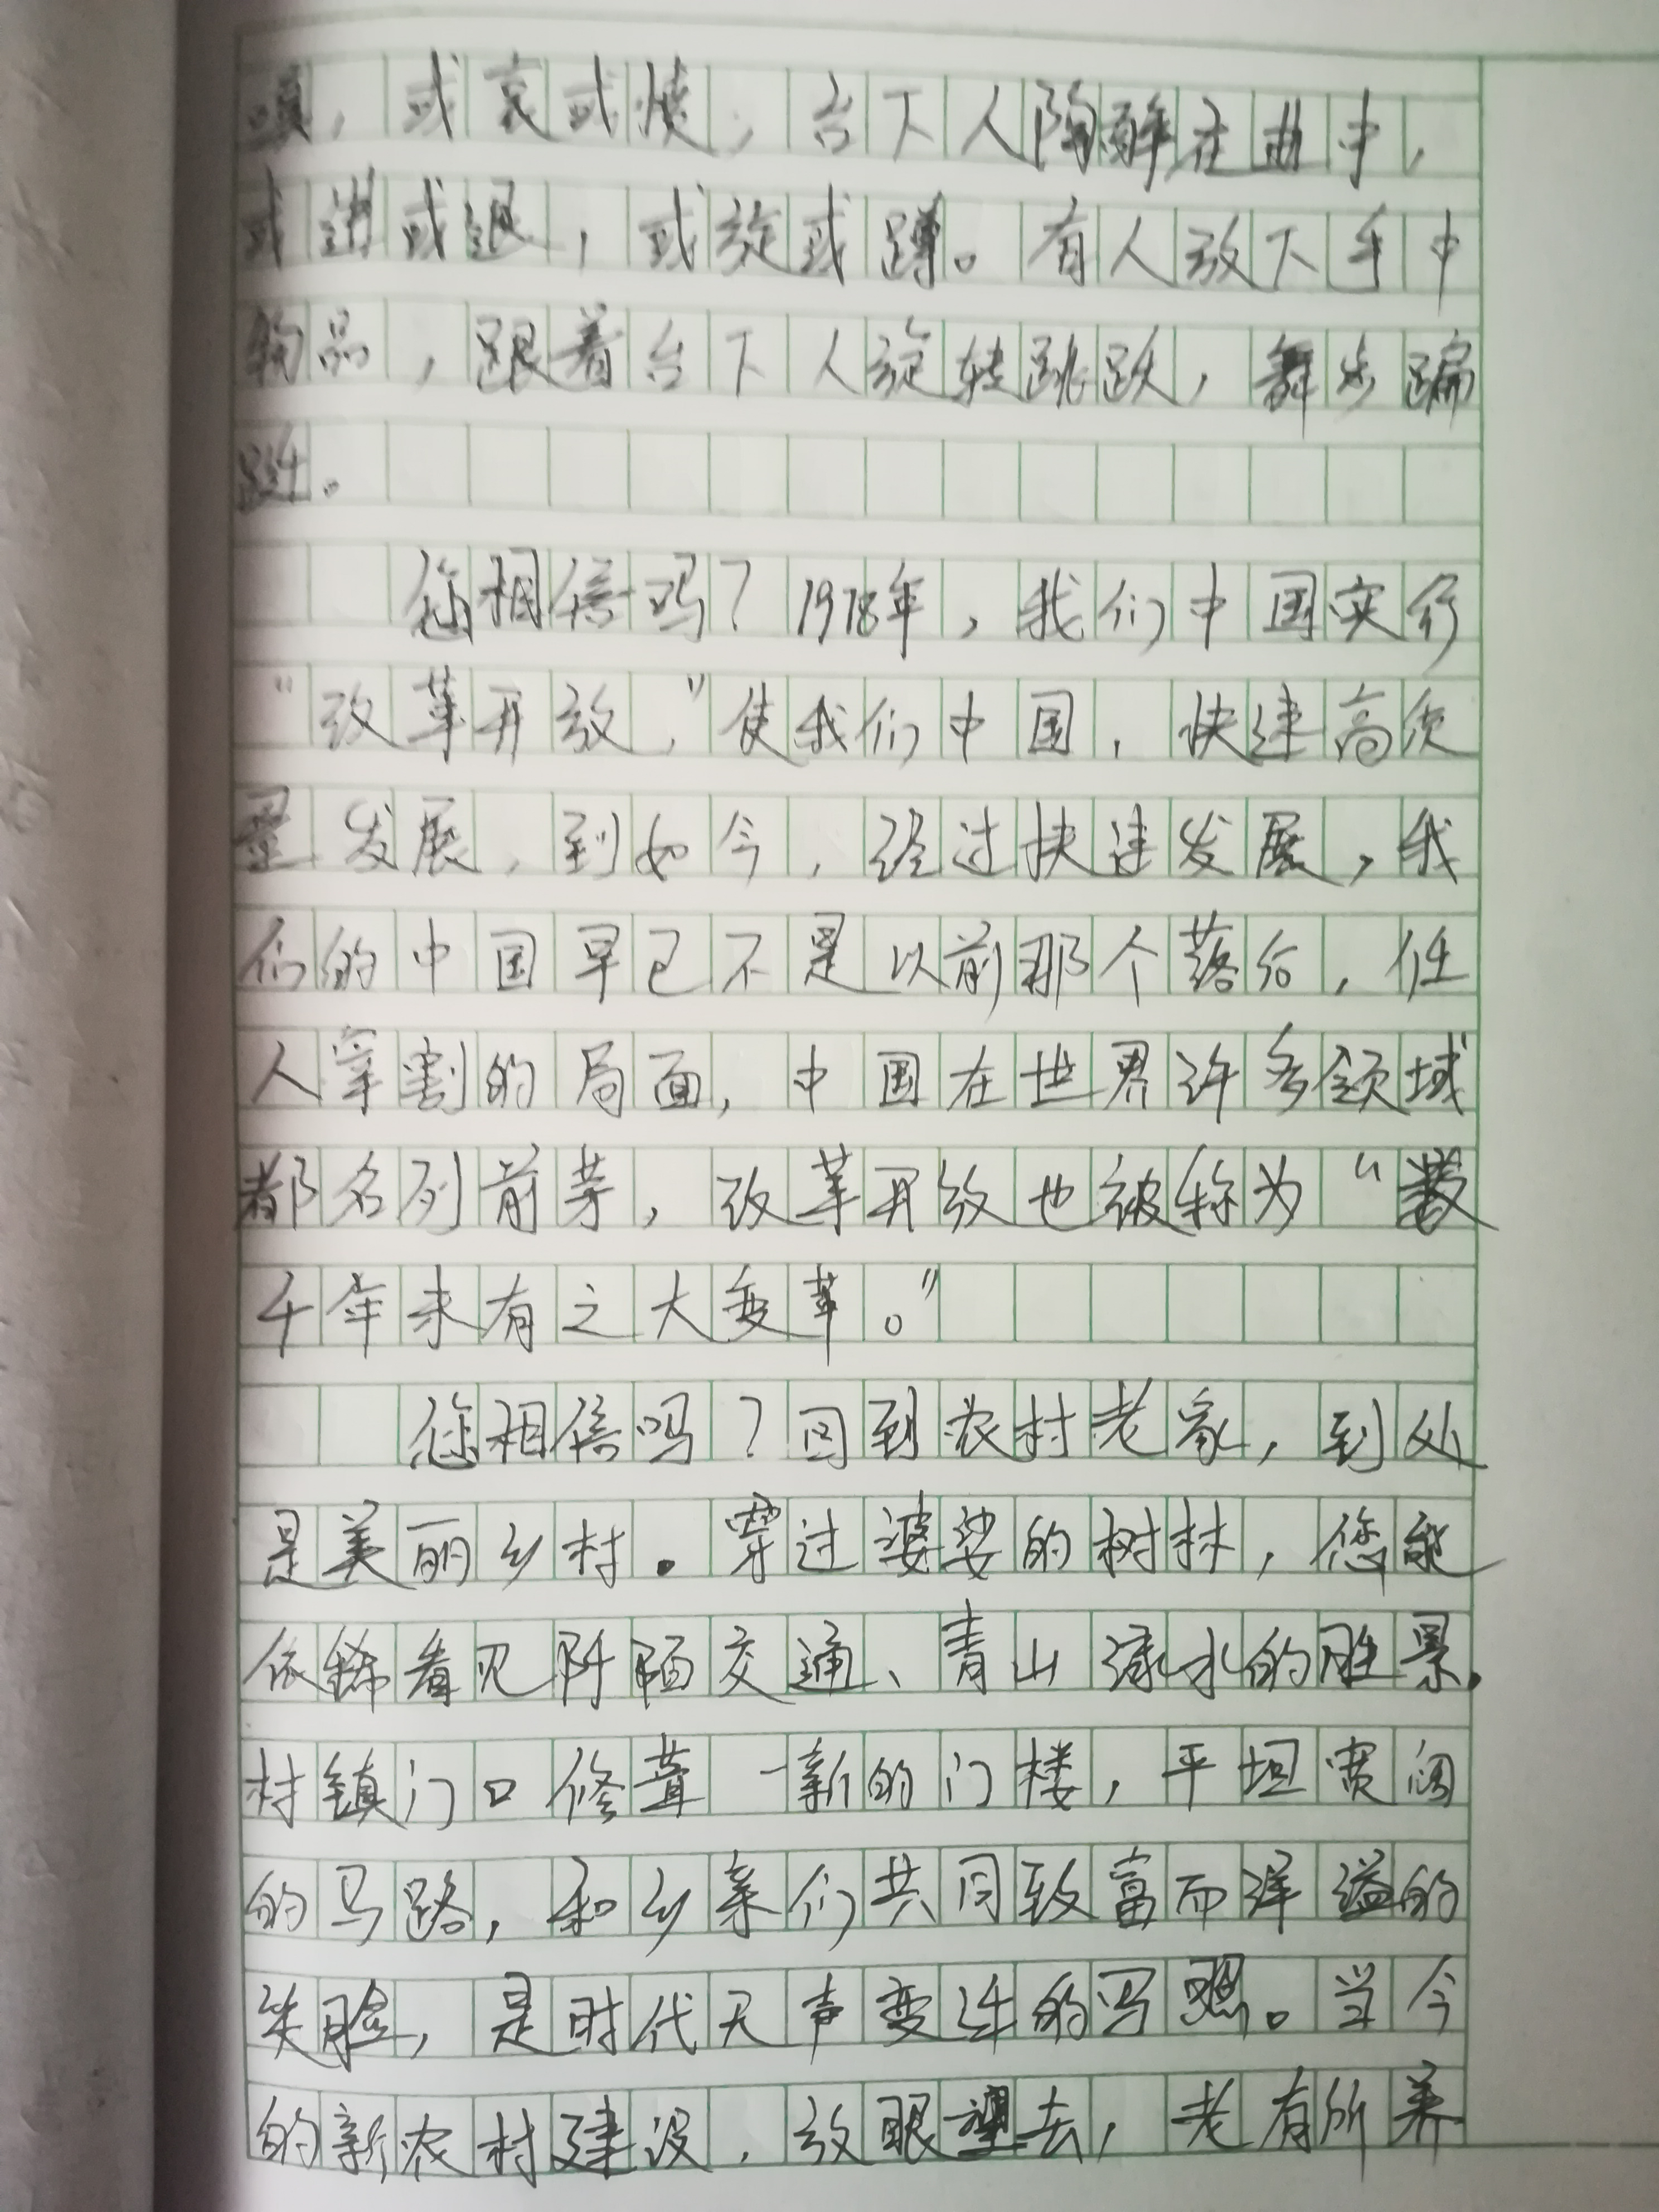 嗔，或哀或愤，台下人陶醉在曲中，
或进或退，或旋或蹲。有人放下手中
物品，跟着台下人旋转跳跃，舞步蹁
跹。
您相信吗？1978年，我们中国实行
“改革开放，”使我们中国，快速高质
量发展，到如今，经过快速发展，我
们的中国早已不是以前那个落后，任
人宰割的局面，中国在世界许多领域
都名列前茅，改革开放也被称为“数
千年未有之大变革。”
您相信吗？回到农村老家，到处
是美丽乡村。穿过婆娑的树林，您能
依稀看见阡陌交通、青山渌水的胜景.
村镇门口修葺一新的门楼，平坦宽阔
的马路，和乡亲们共同致富而洋溢的
笑脸，是时代无声变迁的写照。当今
的新农村建设，放眼望去，老有所养